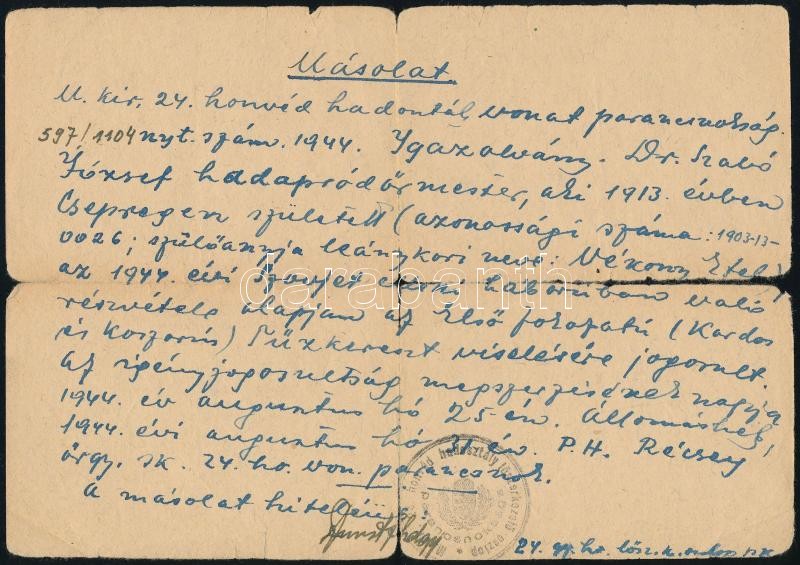 Másolat.
M. kir. 24. honvéd hadosztál vonat parancsnokság.
597/1104 nyt. szám. 1944. Igazolvány. Dr. Szabó
József hadapródőrmester, aki 1913. évben
Csepregen született (azonossági száma: 1903-13-
0026; szülőanyja leánykori neve: Vékony Etel)
az 1944. évi Szovjet elleni háborúban való
részvétele alapján az Első fokozatú (Kardos
és Koszorús) Tűzkereszt viselésére jogosult.
Az igényjogosultság megszerzésének napja
1944. év augusztus hó 25-én. Állomáshely,
1944. évi augusztus hó 31-én. P.H. Récsey
őrgy. sk. 24. ho. von. parancsnok.
A másolat hiteléül:
24.
darabanth